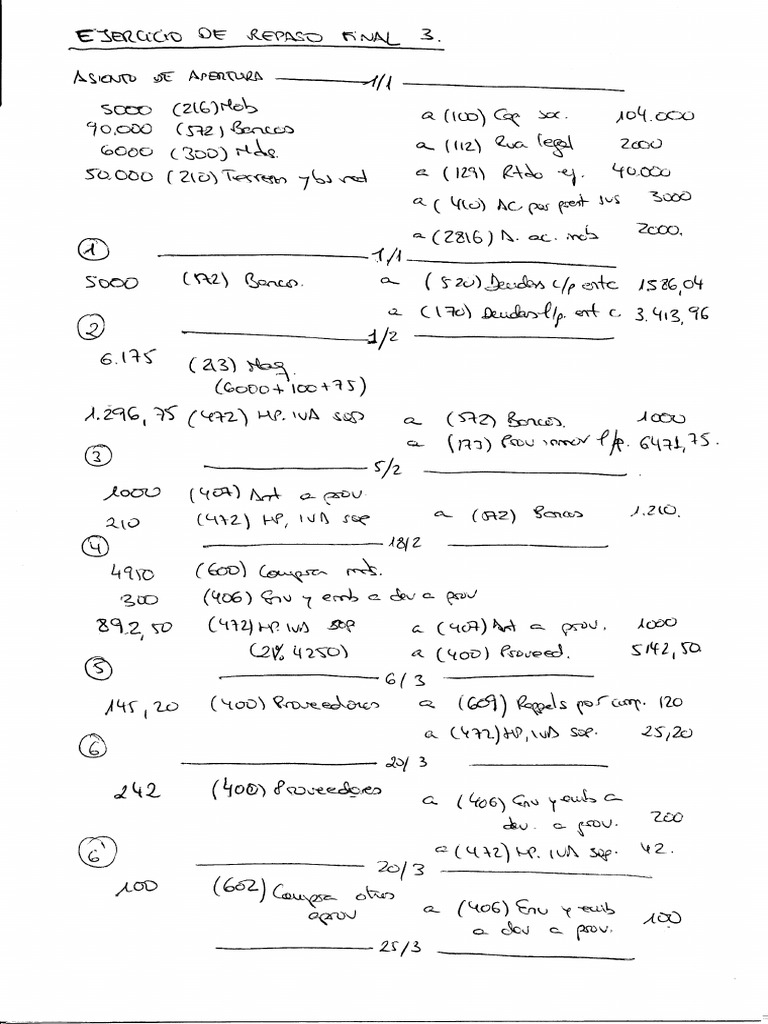 EJERCICIO DE REPASO FINAL 3.
ASIENTO DE APERTURA 1/1
5000 (216) Mob a (100) Cap soc. 104.000
90.000 (572) Bancos a (112) Rva legal 2000
6000 (300) Mds. a (129) Rtdo ej. 40.000
50.000 (210) Terrenos y bs nat a (410) AC por prest svs 3000
a (2816) A. ac. mob 2000.
① 1/1
5000 (572) Bancos. a (520) Deudas c/p entc 1586,04
a (170) Deudas l/p. ent c 3.413,96
② 1/2
6.175 (213) Maq.
(6000+100+75)
1.296,75 (472) HP. IVA sop a (572) Bancos. 1000
a (173) Prov inmov l/p. 6471,75.
③ 5/2
1000 (407) Ant a prov.
210 (472) HP, IVA sop a (572) Bancos 1.210.
④ 18/2
4950 (600) Compra mds.
300 (406) Env y emb a dev a prov
892,50 (472) HP. IVA sop a (407) Ant a prov. 1000
(21% 4250) a (400) Proveed. 5142,50
⑤ 6/3
145,20 (400) Proveedores a (609) Rappels por comp. 120
a (472) HP, IVA sop. 25,20
⑥ 20/3
242 (400) Proveedores a (406) Env y emb a
dev. a prov. 200
a (472) HP. IVA sop. 42.
⑥' 20/3
100 (602) Compra otros
aprov a (406) Env y emb
a dev a prov. 100
25/3